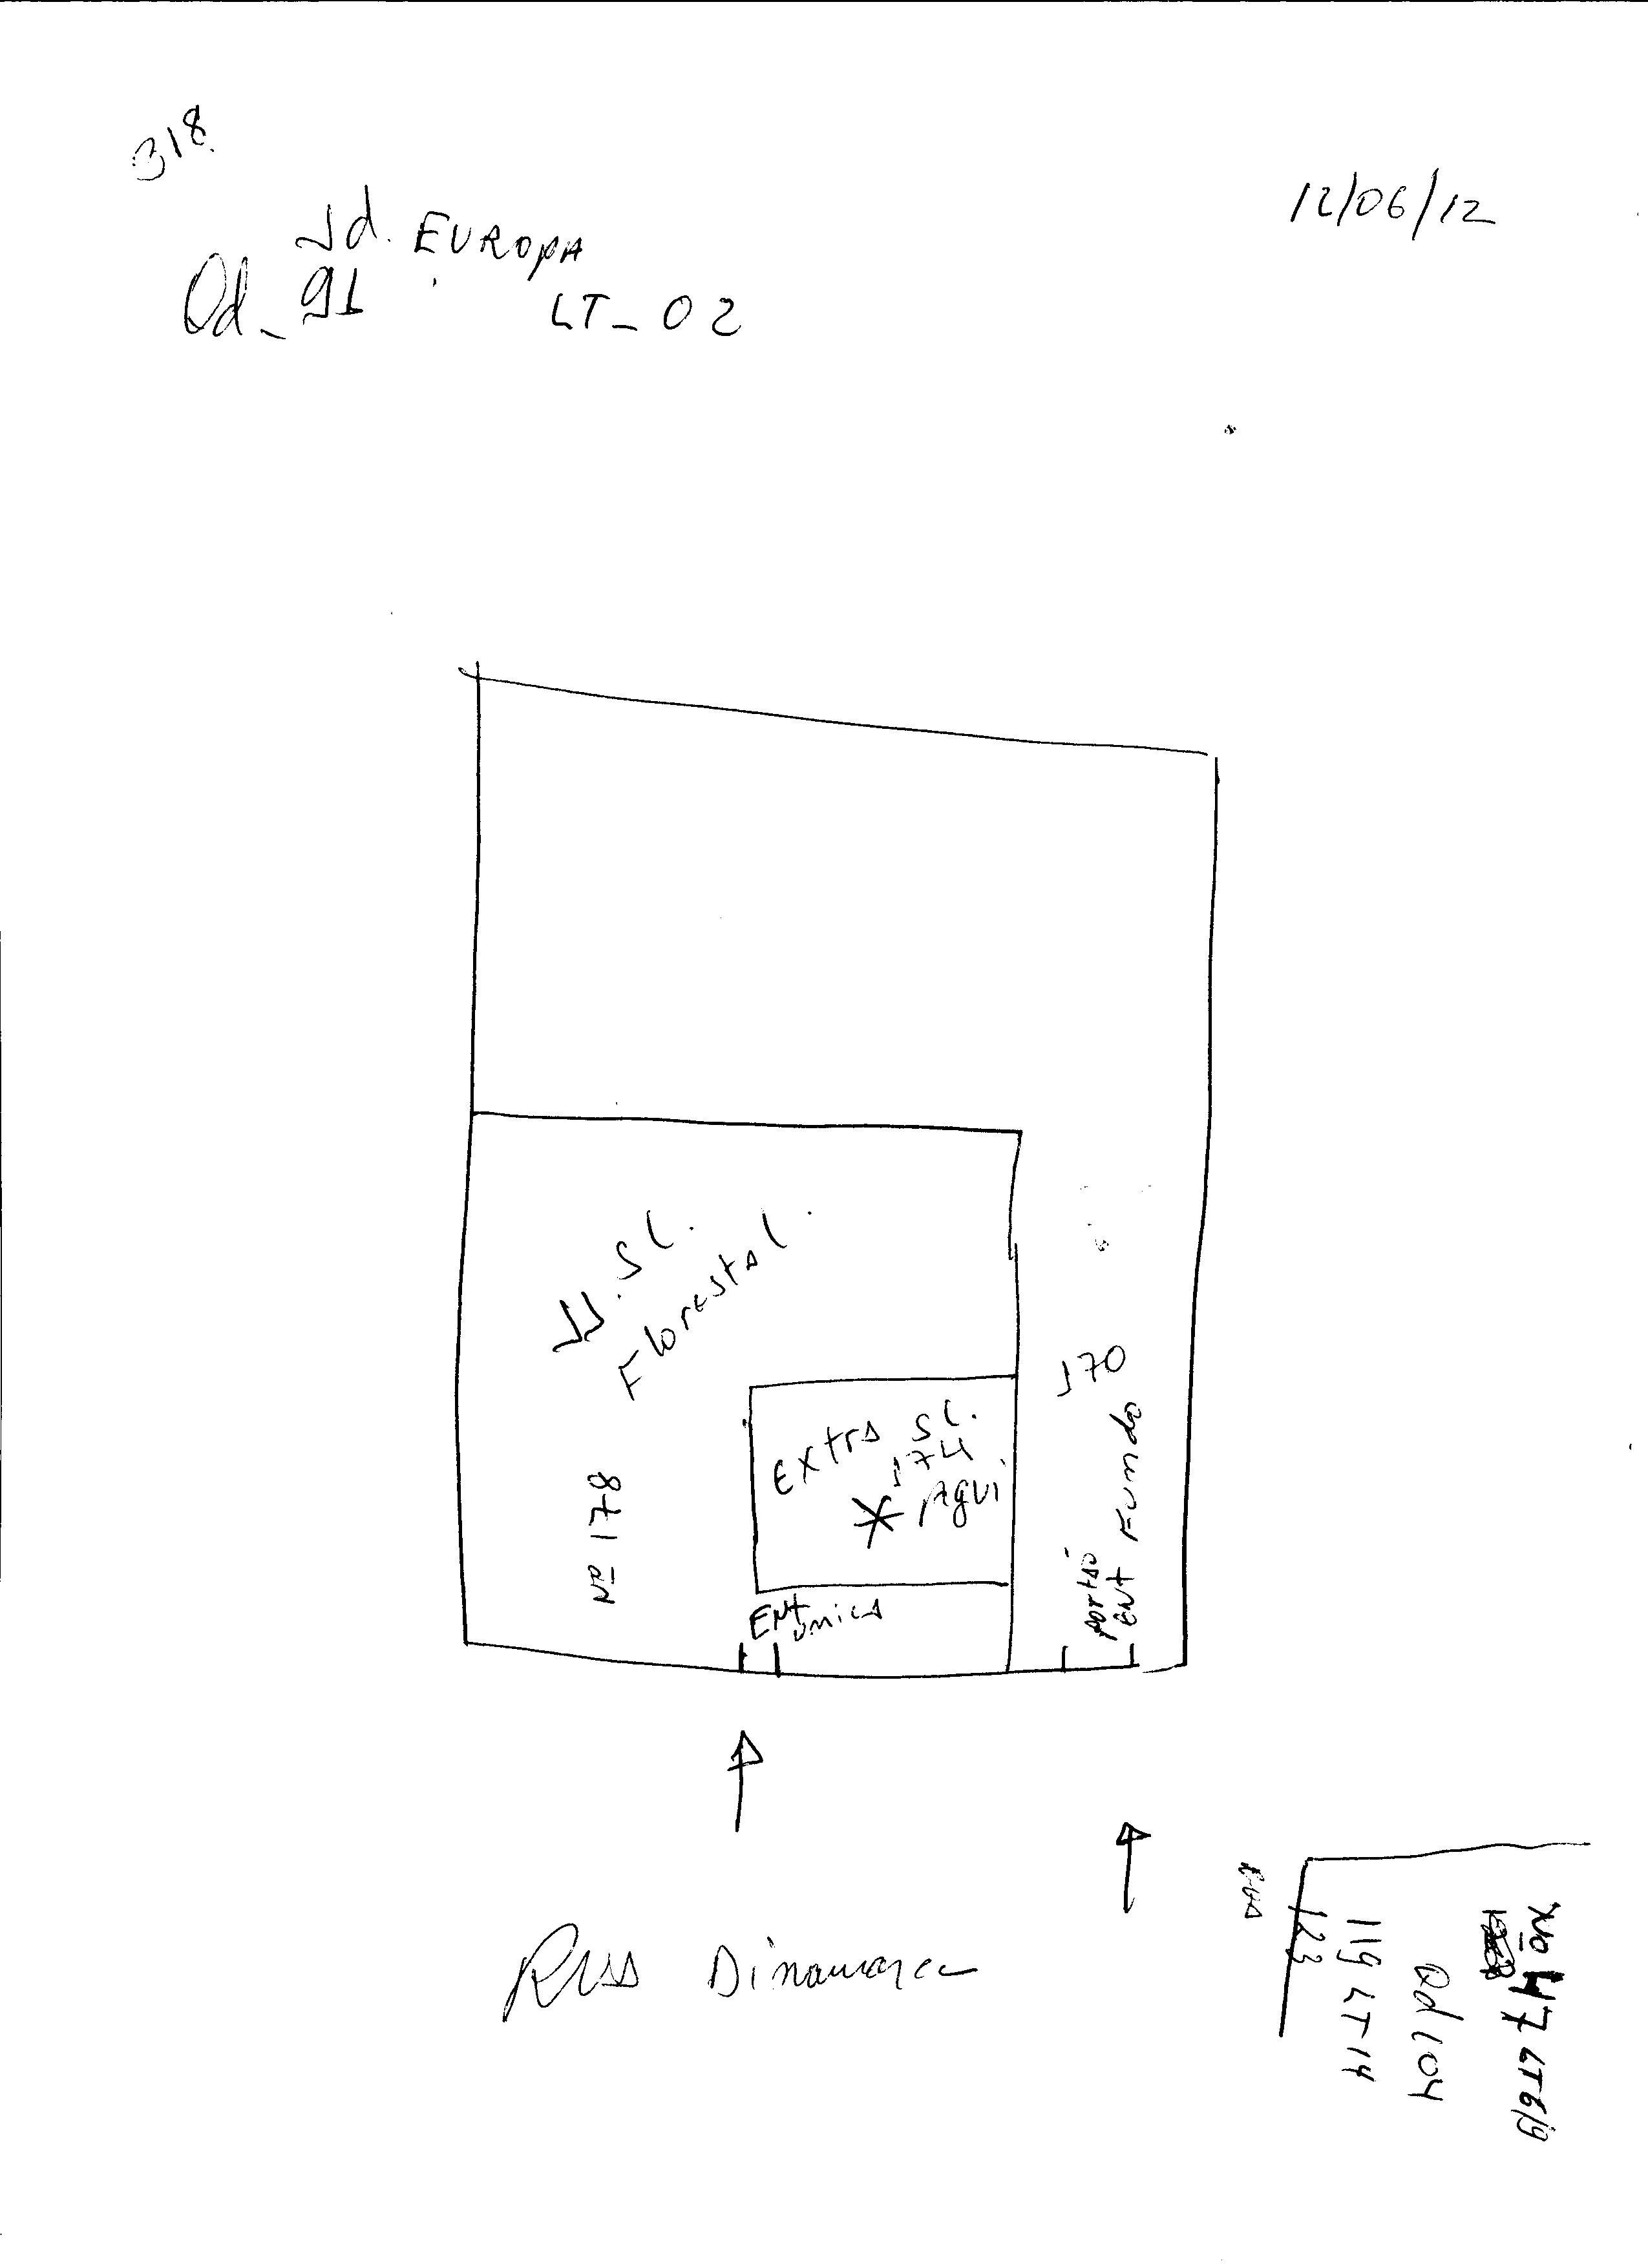 318
12/06/12
Jd. EUROPA
Qd_91 LT_02
JJ. SL.
Florestal.
170
Extra SL.
174
* Aqui
Nº 178
portão
ENT Fundo
ENT
única
Rua Dinamarca
RUA
123
119 LT-14
Qd 104
Nº
47 LT 6/9